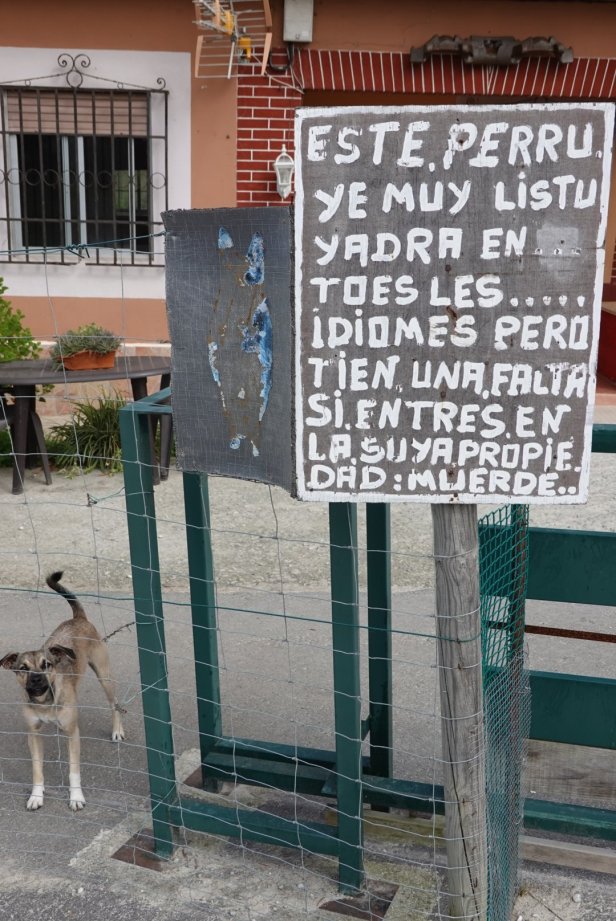 ESTE. PERRU.
YE MUY LiSTU
YADRA EN
TOES LES.....
iDiOMES PERO
TiEN UNA, FALTA
Si. ENTRES. EN
LA. SUYA PROPiE.
DAD: MUERDE..